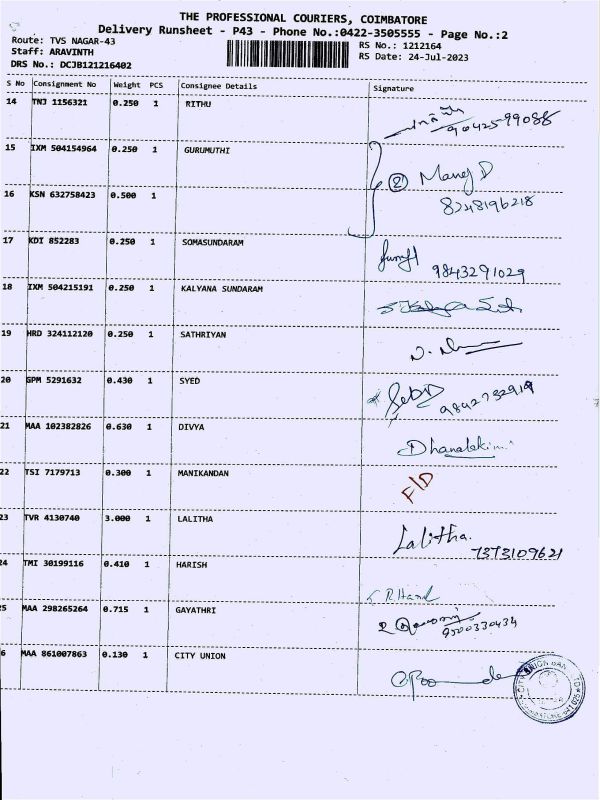 THE PROFESSIONAL COURIERS, COIMBATORE
Delivery Runsheet - P43 - Phone No.:0422-3505555 - Page No.:2
Route: TVS NAGAR-43
RS No.: 1212164
Staff: ARAVINTH
RS Date: 24-Jul-2023
DRS No.: DCJB121216402
S No Consignment No Weight PCS Consignee Details Signature
14 TNJ 1156321 0.250 1 RITHU
9042599088
15 IXM 504154964 0.250 1 GURUMUTHI
2 Manoj D
16 KSN 632758423 0.500 1
8248196218
17 KDI 852283 0.250 1 SOMASUNDARAM
9843291029
18 IXM 504215191 0.250 1 KALYANA SUNDARAM
19 HRD 324112120 0.250 1 SATHRIYAN
20 GPM 5291632 0.430 1 SYED
9842732919
21 MAA 102382826 0.630 1 DIVYA
22 TSI 7179713 0.300 1 MANIKANDAN
F/D
23 TVR 4130740 3.000 1 LALITHA
Lalitha.
7373109621
24 TMI 30199116 0.410 1 HARISH
25 MAA 298265264 0.715 1 GAYATHRI
9500330434
6 MAA 861007863 0.130 1 CITY UNION